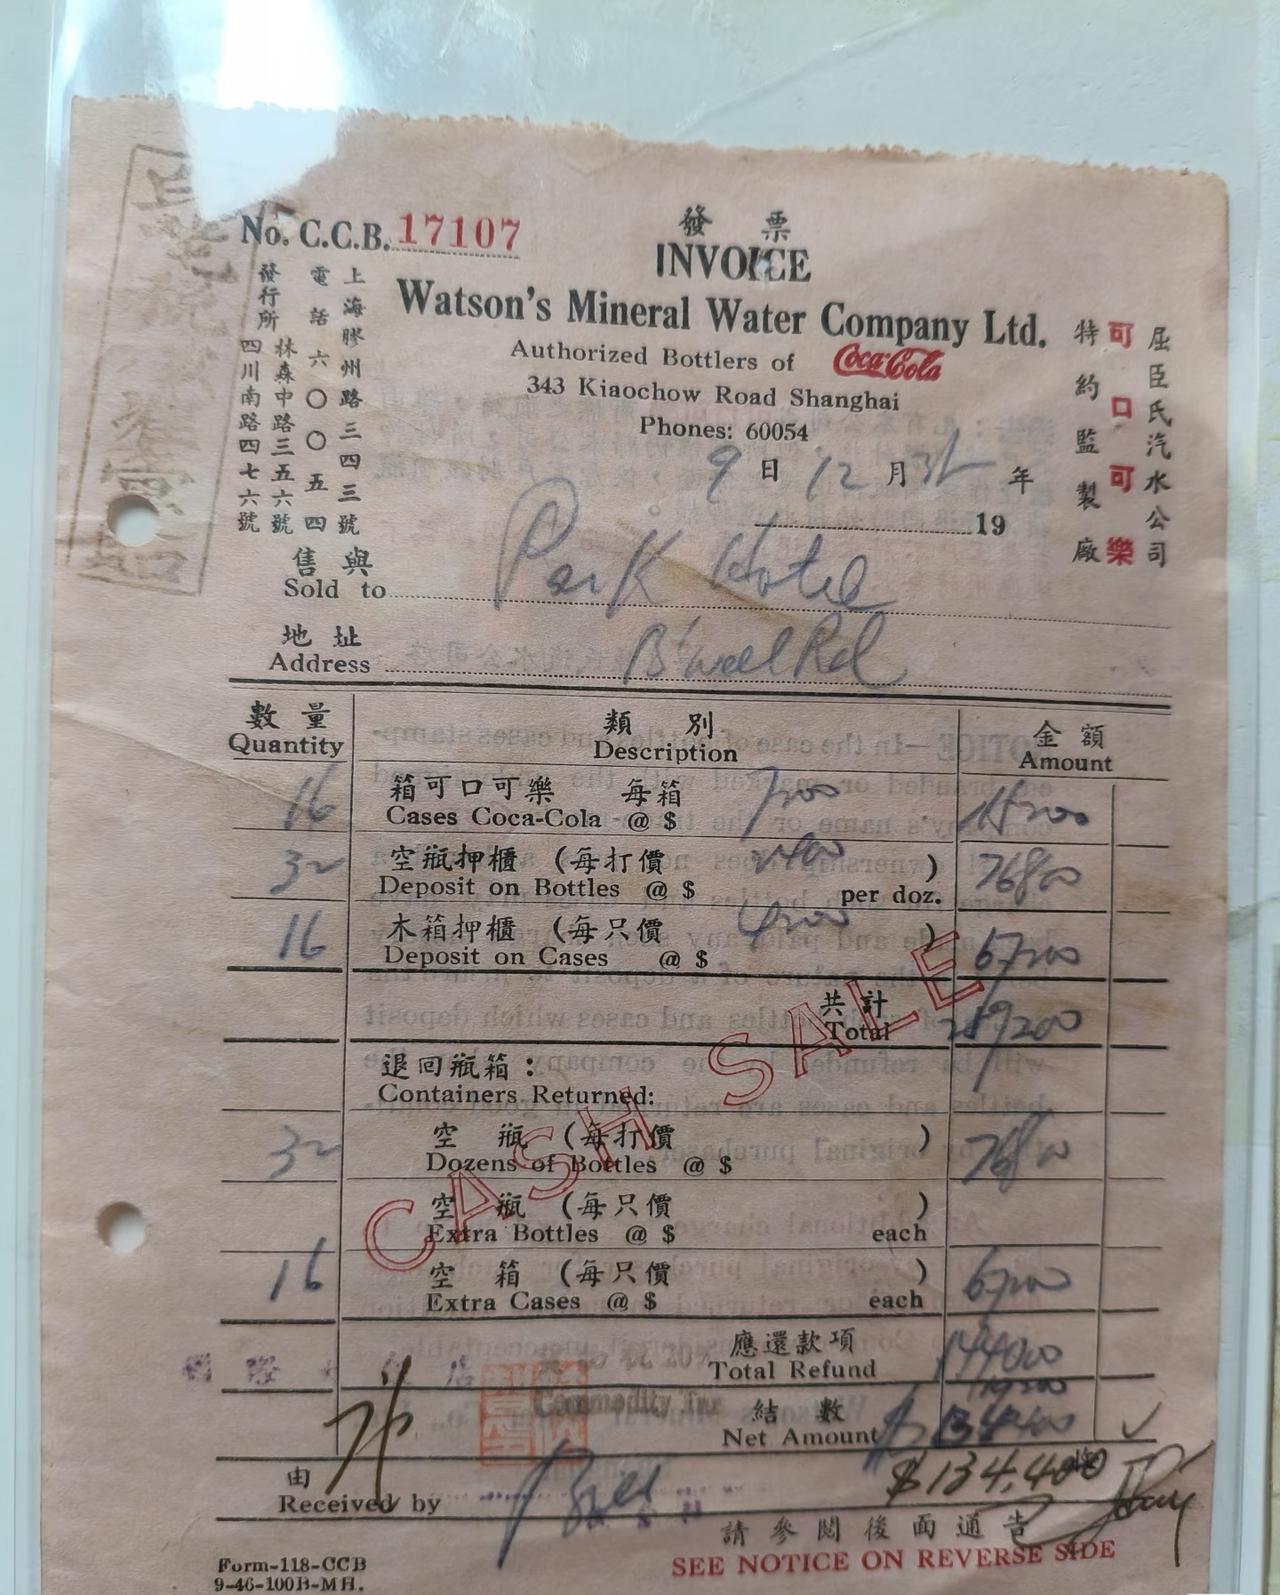 No. C.C.B. 17107
發票
INVOICE
Watson's Mineral Water Company Ltd.
Authorized Bottlers of Coca-Cola
343 Kiaochow Road Shanghai
Phones: 60054
上海膠州路三四三號
電話六〇〇五四
林森中路三五六號
發行所 四川南路四七六號
屈臣氏汽水公司
可口可樂
特約監製廠
9日12月 年
19
售與
Sold to Park Hotel
地址
Address B'well Rd
數量 類別 金額
Quantity Description Amount
箱可口可樂 每箱
16 Cases Coca-Cola @ $ 7200
空瓶押櫃 (每打價 )
32 Deposit on Bottles @ $ 2400 per doz. 76800
木箱押櫃 (每只價 )
16 Deposit on Cases @ $ 4200 67200
共計
Total 259200
退回瓶箱:
Containers Returned:
空瓶 (每打價 )
32 Dozens of Bottles @ $ 76800
空瓶 (每只價 )
Extra Bottles @ $ each
空箱 (每只價 )
16 Extra Cases @ $ each 67200
應還款項
Total Refund 144000
Commodity Tax 19200
結數
Net Amount $ 134400
CASH SALE
由
Received by
$134,400
請參閱後面通告
SEE NOTICE ON REVERSE SIDE
Form-118-CCB
9-46-100B-MH.